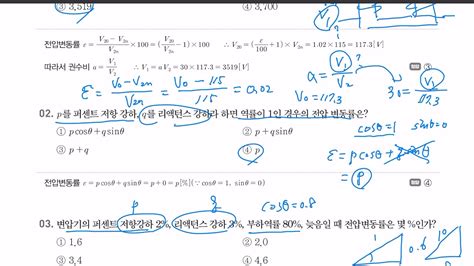 ③ 3,519
④ 3,700
V₁
전압변동률 ε = (V₂₀ − V₂ₙ)/V₂ₙ × 100 = (V₂₀/V₂ₙ − 1) × 100 ∴ V₂₀ = (ε/100 + 1) × V₂ₙ = 1.02 × 115 = 117.3[V]
따라서 권수비 a = V₁/V₂ ∴ V₁ = a V₂ = 30 × 117.3 = 3519[V] ③
ε = (V₀ − V₂ₙ)/V₂ₙ = (V₀ − 115)/115 = 0.02
a = V₁/V₂
V₀ = 117.3
30 = V₁/117.3
02. p를 퍼센트 저항 강하, q를 리액턴스 강하라 하면 역률이 1인 경우의 전압 변동률은?
cosθ = 1 sinθ = 0
① p cosθ + q sinθ
② p + q sinθ
③ p + q
④ p
ε = p cosθ + q sinθ
= p
전압변동률 ε = p cosθ + q sinθ = p + 0 = p[%](∵ cosθ = 1, sinθ = 0) ④
p q cosθ = 0.8
03. 변압기의 퍼센트 저항강하 2%, 리액턴스 강하 3%, 부하역률 80%, 늦음일 때 전압변동률은 몇 %인가?
① 1,6
② 2,0
③ 3,4
④ 4,6
1 0.6 10